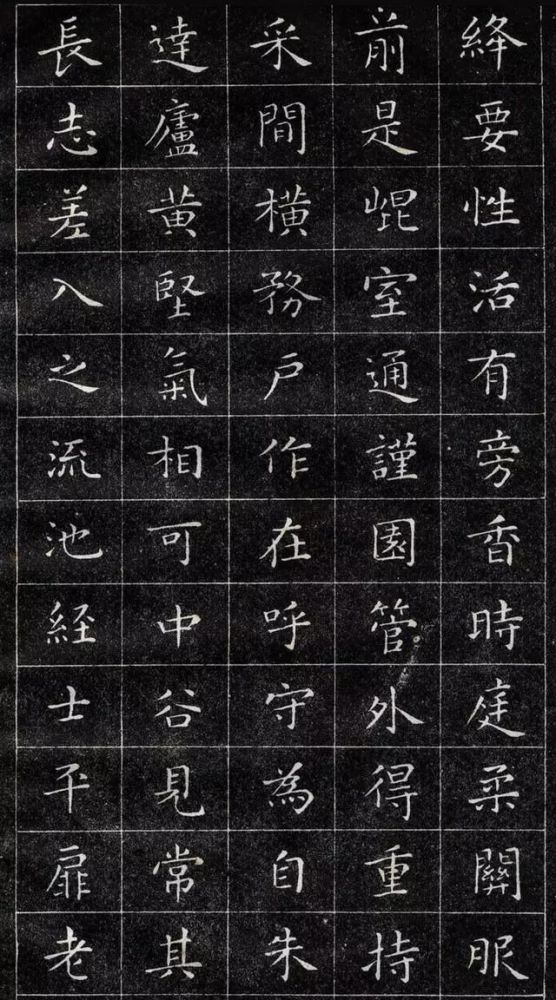 絳要性活有旁香時庭柔關服
前是崐室通謹園管外得重持
采間橫務戶作在呼守為自朱
達廬黄堅氣相可中谷見常其
長志差入之流池経士平扉老